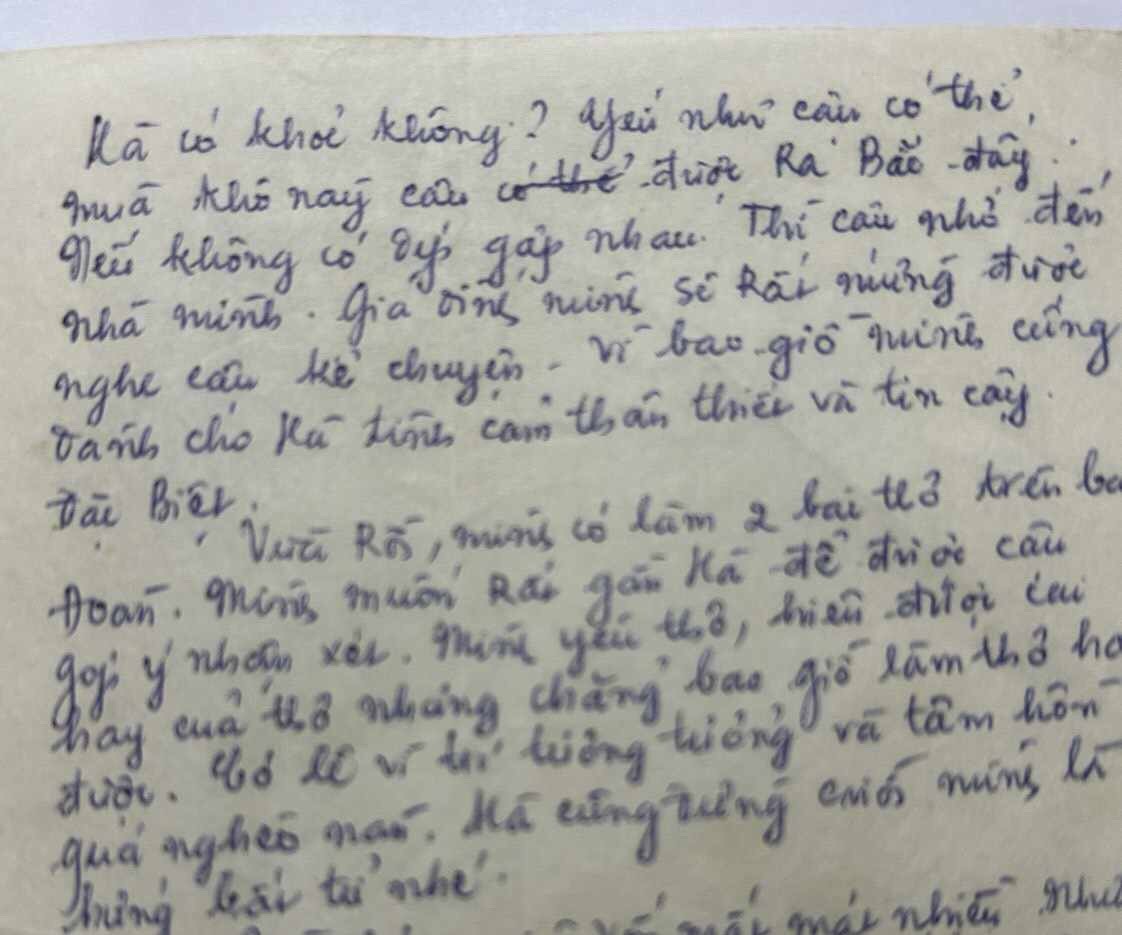 Hà có khoẻ không? Nếu như cậu có thể,
mùa khô này cậu có thể được Ra Bắc đấy.
Nếu không có dịp gặp nhau. Thì cậu nhớ đến
nhà mình. Gia đình mình sẽ Rất mừng được
nghe cậu kể chuyện. Vì bao giờ mình cũng
dành cho Hà tình cảm thân thiết và tin cậy.
Đặc Biệt.
Vừa Rồi, mình có làm 2 bài thơ trên
Đoàn. Mình muốn Rất gần Hà để được cậu
góp ý nhận xét. Mình yêu thơ, hiểu được cái
hay của thơ nhưng chẳng bao giờ làm thơ
được. Có lẽ vì trí tưởng tượng và tâm hồn
quá nghèo nàn. Hà cũng đừng cười mình là
không bất tử nhé.
mất mát nhiều